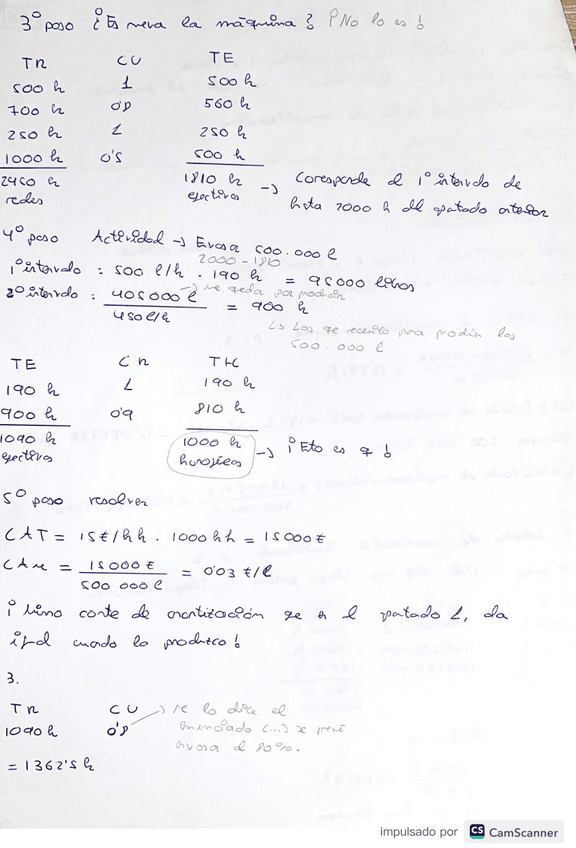 3º paso ¿Es nueva la máquina? ¡No lo es!
TR CU TE
500 h 1 500 h
700 h 0'8 560 h
250 h 1 250 h
1000 h 0'5 500 h
2450 h reales 1810 h efectivas → Corresponde al 1º intervalo de hasta 2000 h del apartado anterior
4º paso Actividad → Envasa 500.000 l
2000 - 1810
1º intervalo : 500 l/h · 190 h = 95000 litros
2º intervalo : 405000 l / 450 l/h = 900 h
→ me queda por producir
↳ Las que necesito para producir los 500.000 l
TE CR TH
190 h 1 190 h
900 h 0'9 810 h
1090 h efectivas 1000 h homogéneas → ¡Esto es !
5º paso resolver
CAT = 15€/hh · 1000 hh = 15000€
CAu = 15000 € / 500 000 l = 0'03 €/l
¡ Mismo coste de amortización que en el apartado 1, da igual cuando lo produzco!
3.
TR CU → me lo dice el enunciado (...) se prevé envasar al 80%.
1090 h 0'8
= 1362'5 h
impulsado por CS CamScanner